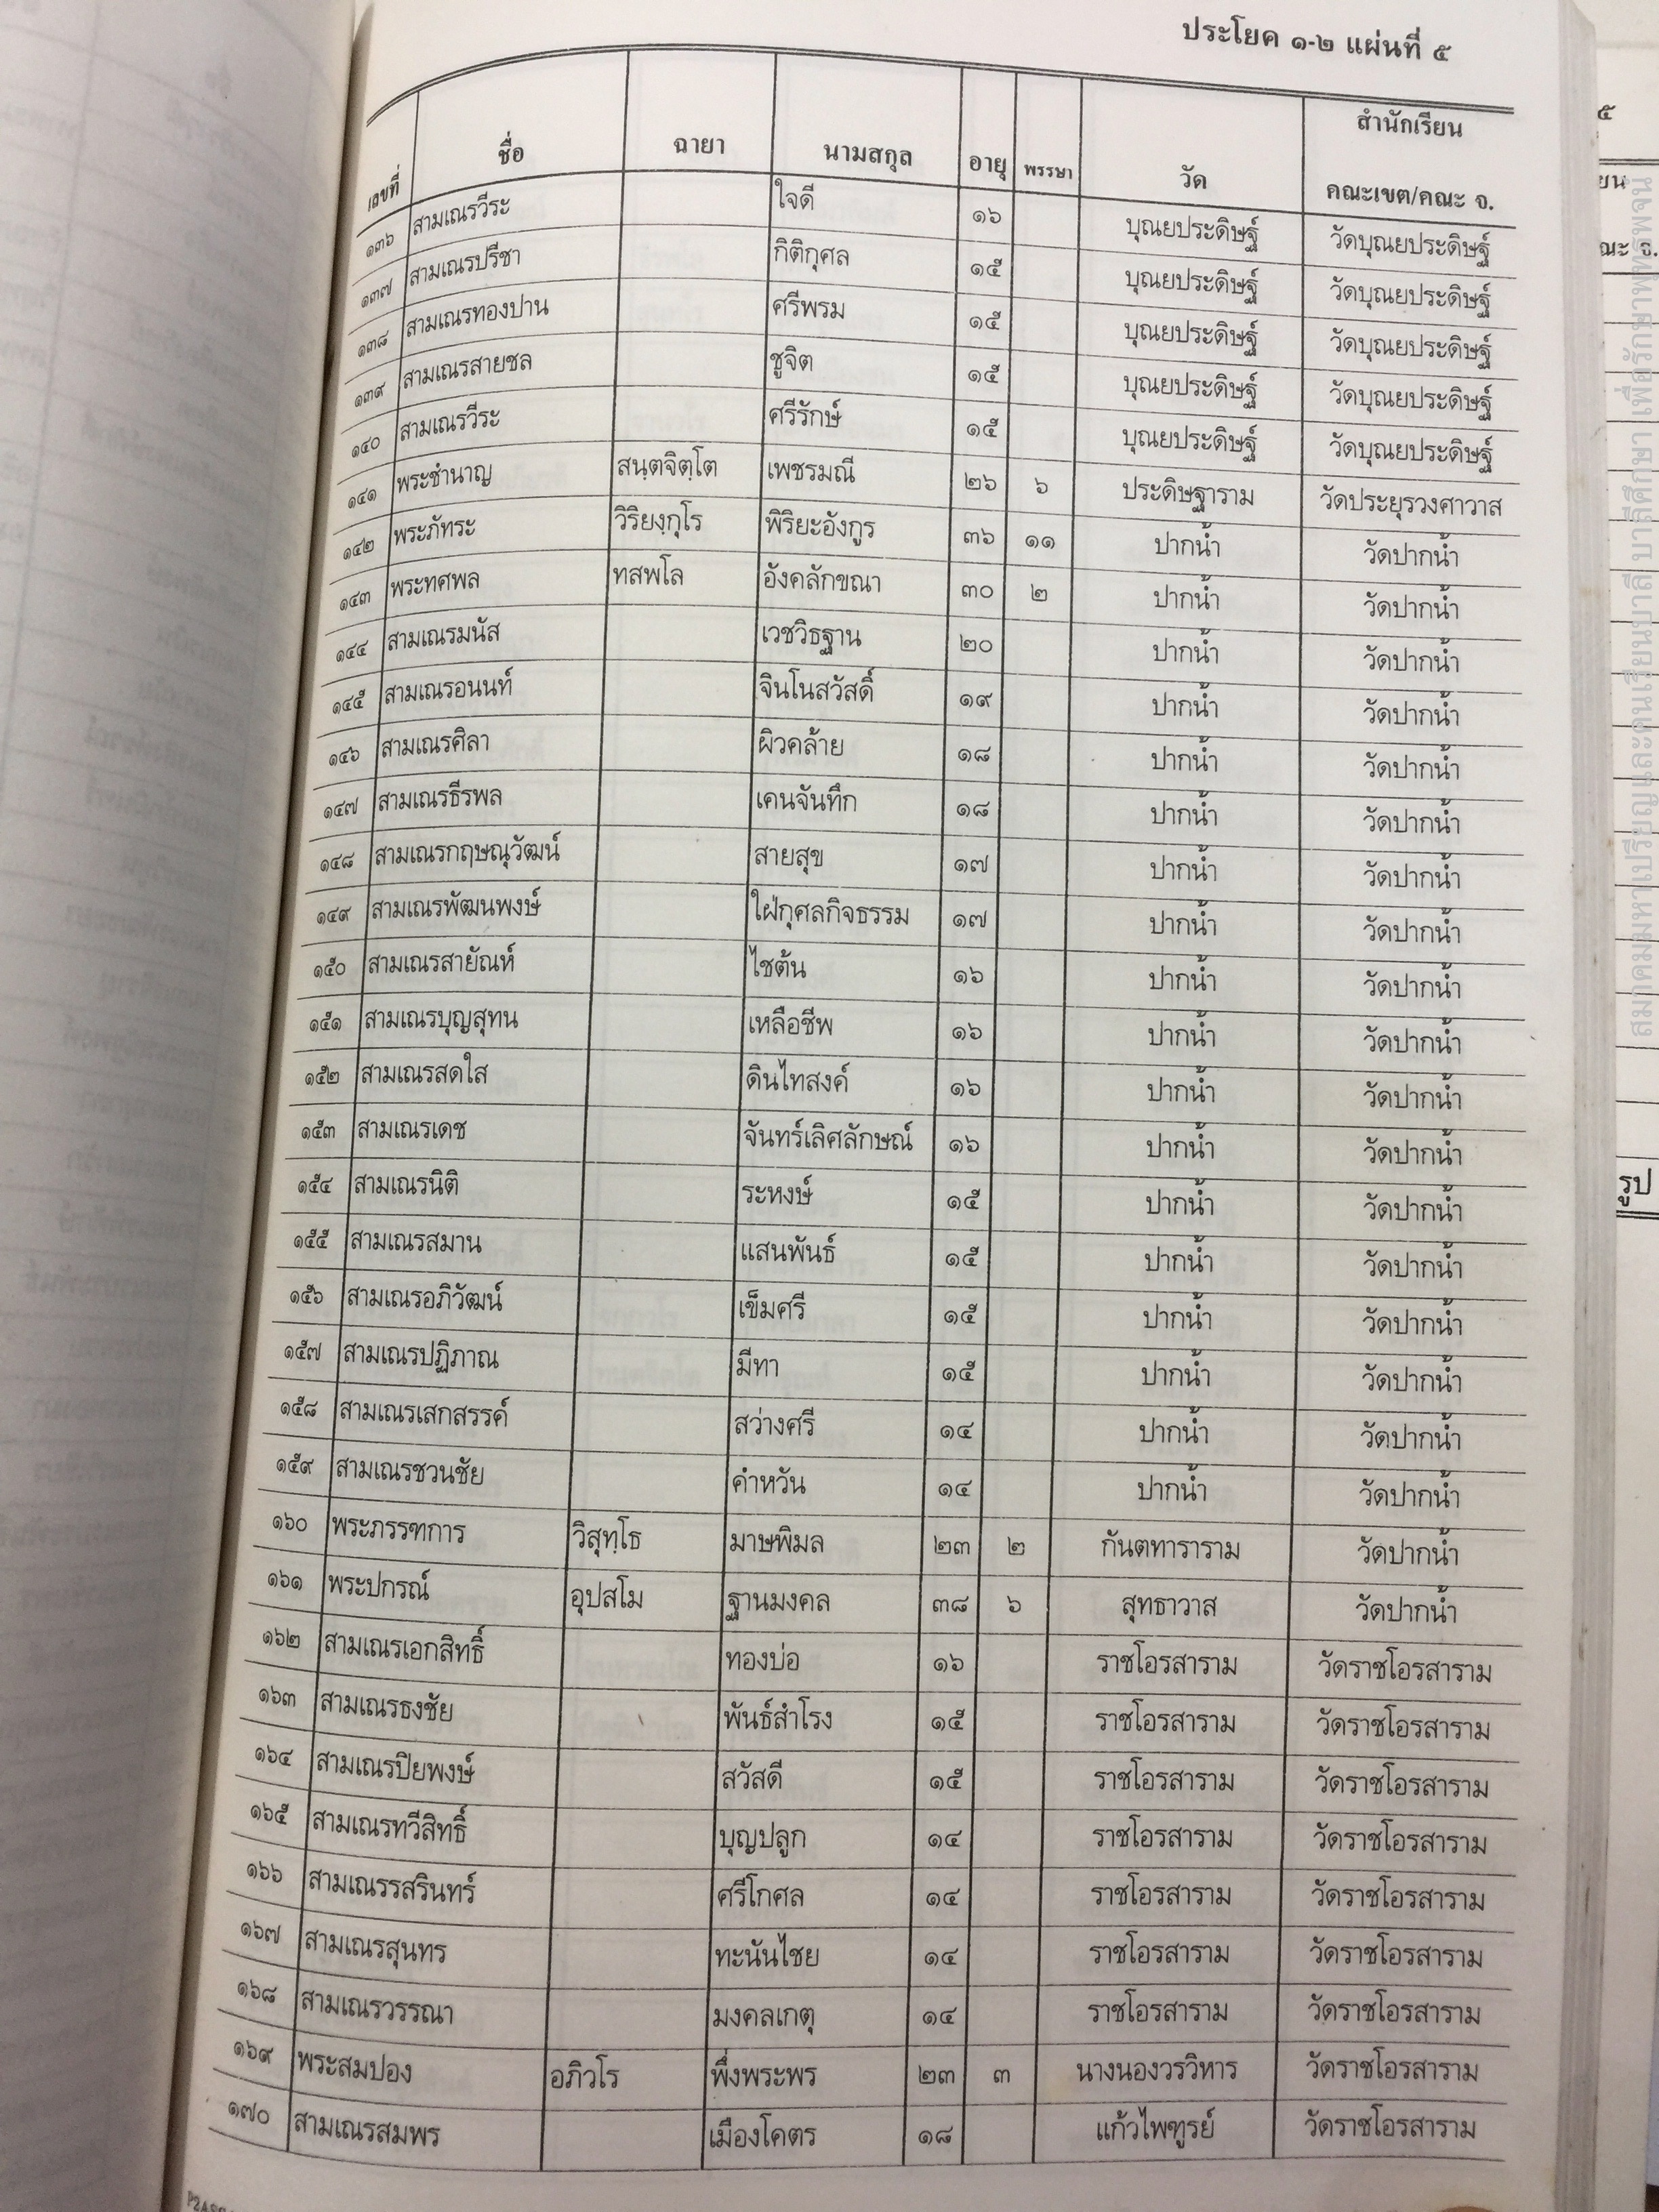 ประโยค ๑-๒ แผ่นที่ ๕
เลขที่ ชื่อ ฉายา นามสกุล อายุ พรรษา วัด สำนักเรียน คณะเขต/คณะ จ.
๑๓๖ สามเณรวีระ ใจดี ๑๖ บุณยประดิษฐ์ วัดบุณยประดิษฐ์
๑๓๗ สามเณรปรีชา กิติกุศล ๑๕ บุณยประดิษฐ์ วัดบุณยประดิษฐ์
๑๓๘ สามเณรทองปาน ศรีพรม ๑๕ บุณยประดิษฐ์ วัดบุณยประดิษฐ์
๑๓๙ สามเณรสายชล ชูจิต ๑๕ บุณยประดิษฐ์ วัดบุณยประดิษฐ์
๑๔๐ สามเณรวีระ ศรีรักษ์ ๑๕ บุณยประดิษฐ์ วัดบุณยประดิษฐ์
๑๔๑ พระชำนาญ สนฺตจิตฺโต เพชรมณี ๒๖ ๖ ประดิษฐาราม วัดประยุรวงศาวาส
๑๔๒ พระภัทระ วิริยงฺกุโร พิริยะอังกูร ๓๖ ๑๑ ปากน้ำ วัดปากน้ำ
๑๔๓ พระทศพล ทสพโล อังคลักขณา ๓๐ ๒ ปากน้ำ วัดปากน้ำ
๑๔๔ สามเณรมนัส เวชวิธฐาน ๒๐ ปากน้ำ วัดปากน้ำ
๑๔๕ สามเณรอนนท์ จินโนสวัสดิ์ ๑๙ ปากน้ำ วัดปากน้ำ
๑๔๖ สามเณรศิลา ผิวคล้าย ๑๘ ปากน้ำ วัดปากน้ำ
๑๔๗ สามเณรธีรพล เคนจันทึก ๑๘ ปากน้ำ วัดปากน้ำ
๑๔๘ สามเณรกฤษณุวัฒน์ สายสุข ๑๗ ปากน้ำ วัดปากน้ำ
๑๔๙ สามเณรพัฒนพงษ์ ใฝ่กุศลกิจธรรม ๑๗ ปากน้ำ วัดปากน้ำ
๑๕๐ สามเณรสายัณห์ ไชต้น ๑๖ ปากน้ำ วัดปากน้ำ
๑๕๑ สามเณรบุญสุทน เหลือชีพ ๑๖ ปากน้ำ วัดปากน้ำ
๑๕๒ สามเณรสดใส ดินไทสงค์ ๑๖ ปากน้ำ วัดปากน้ำ
๑๕๓ สามเณรเดช จันทร์เลิศลักษณ์ ๑๖ ปากน้ำ วัดปากน้ำ
๑๕๔ สามเณรนิติ ระหงษ์ ๑๕ ปากน้ำ วัดปากน้ำ
๑๕๕ สามเณรสมาน แสนพันธ์ ๑๕ ปากน้ำ วัดปากน้ำ
๑๕๖ สามเณรอภิวัฒน์ เข็มศรี ๑๕ ปากน้ำ วัดปากน้ำ
๑๕๗ สามเณรปฏิภาณ มีทา ๑๕ ปากน้ำ วัดปากน้ำ
๑๕๘ สามเณรเสกสรรค์ สว่างศรี ๑๔ ปากน้ำ วัดปากน้ำ
๑๕๙ สามเณรชวนชัย คำหวัน ๑๔ ปากน้ำ วัดปากน้ำ
๑๖๐ พระภรรฑการ วิสุทฺโธ มาษพิมล ๒๓ ๒ กันตทาราราม วัดปากน้ำ
๑๖๑ พระปกรณ์ อุปสโม ฐานมงคล ๓๘ ๖ สุทธาวาส วัดปากน้ำ
๑๖๒ สามเณรเอกสิทธิ์ ทองบ่อ ๑๖ ราชโอรสาราม วัดราชโอรสาราม
๑๖๓ สามเณรธงชัย พันธ์สำโรง ๑๕ ราชโอรสาราม วัดราชโอรสาราม
๑๖๔ สามเณรปิยพงษ์ สวัสดี ๑๕ ราชโอรสาราม วัดราชโอรสาราม
๑๖๕ สามเณรทวีสิทธิ์ บุญปลูก ๑๔ ราชโอรสาราม วัดราชโอรสาราม
๑๖๖ สามเณรรสรินทร์ ศรีโกศล ๑๔ ราชโอรสาราม วัดราชโอรสาราม
๑๖๗ สามเณรสุนทร ทะนันไชย ๑๔ ราชโอรสาราม วัดราชโอรสาราม
๑๖๘ สามเณรวรรณา มงคลเกตุ ๑๔ ราชโอรสาราม วัดราชโอรสาราม
๑๖๙ พระสมปอง อภิวโร พึ่งพระพร ๒๓ ๓ นางนองวรวิหาร วัดราชโอรสาราม
๑๗๐ สามเณรสมพร เมืองโคตร ๑๘ แก้วไพฑูรย์ วัดราชโอรสาราม
รูป
สมาคมมหาเปรียญและคนเรียนบาลี บาลีศึกษา เพื่อรักษาพุทธพจน์